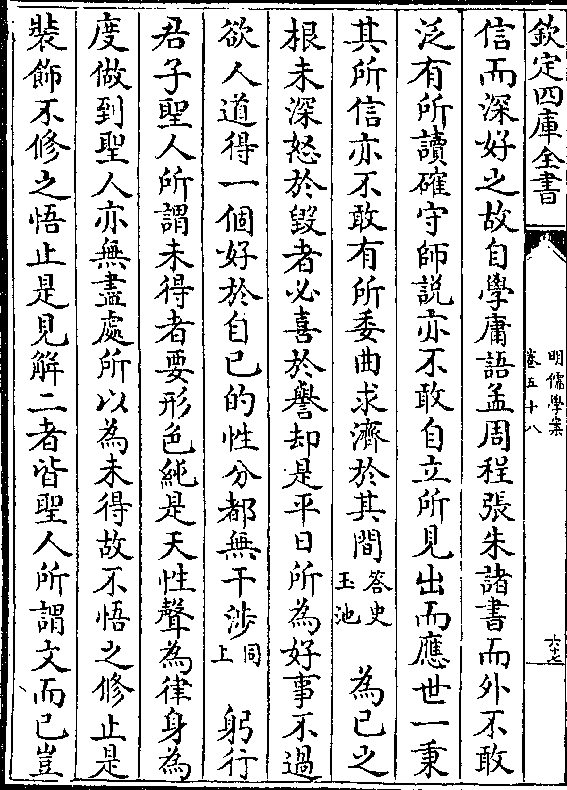 欽定四庫全書
明儒學案
卷五十八
六十七
信而深好之故自學庸語孟周程張朱諸書而外不敢
泛有所讀確守師説亦不敢自立所見出而應世一秉
其所信亦不敢有所委曲求濟於其間答史玉池　為己之
根未深怒於毀者必喜於譽却是平日所為好事不過
欲人道得一個好於自己的性分都無干涉同上　躬行
君子聖人所謂未得者要形色純是天性聲為律身為
度做到聖人亦無盡處所以為未得故不悟之修止是
裝飾不修之悟止是見解二者皆聖人所謂文而已豈